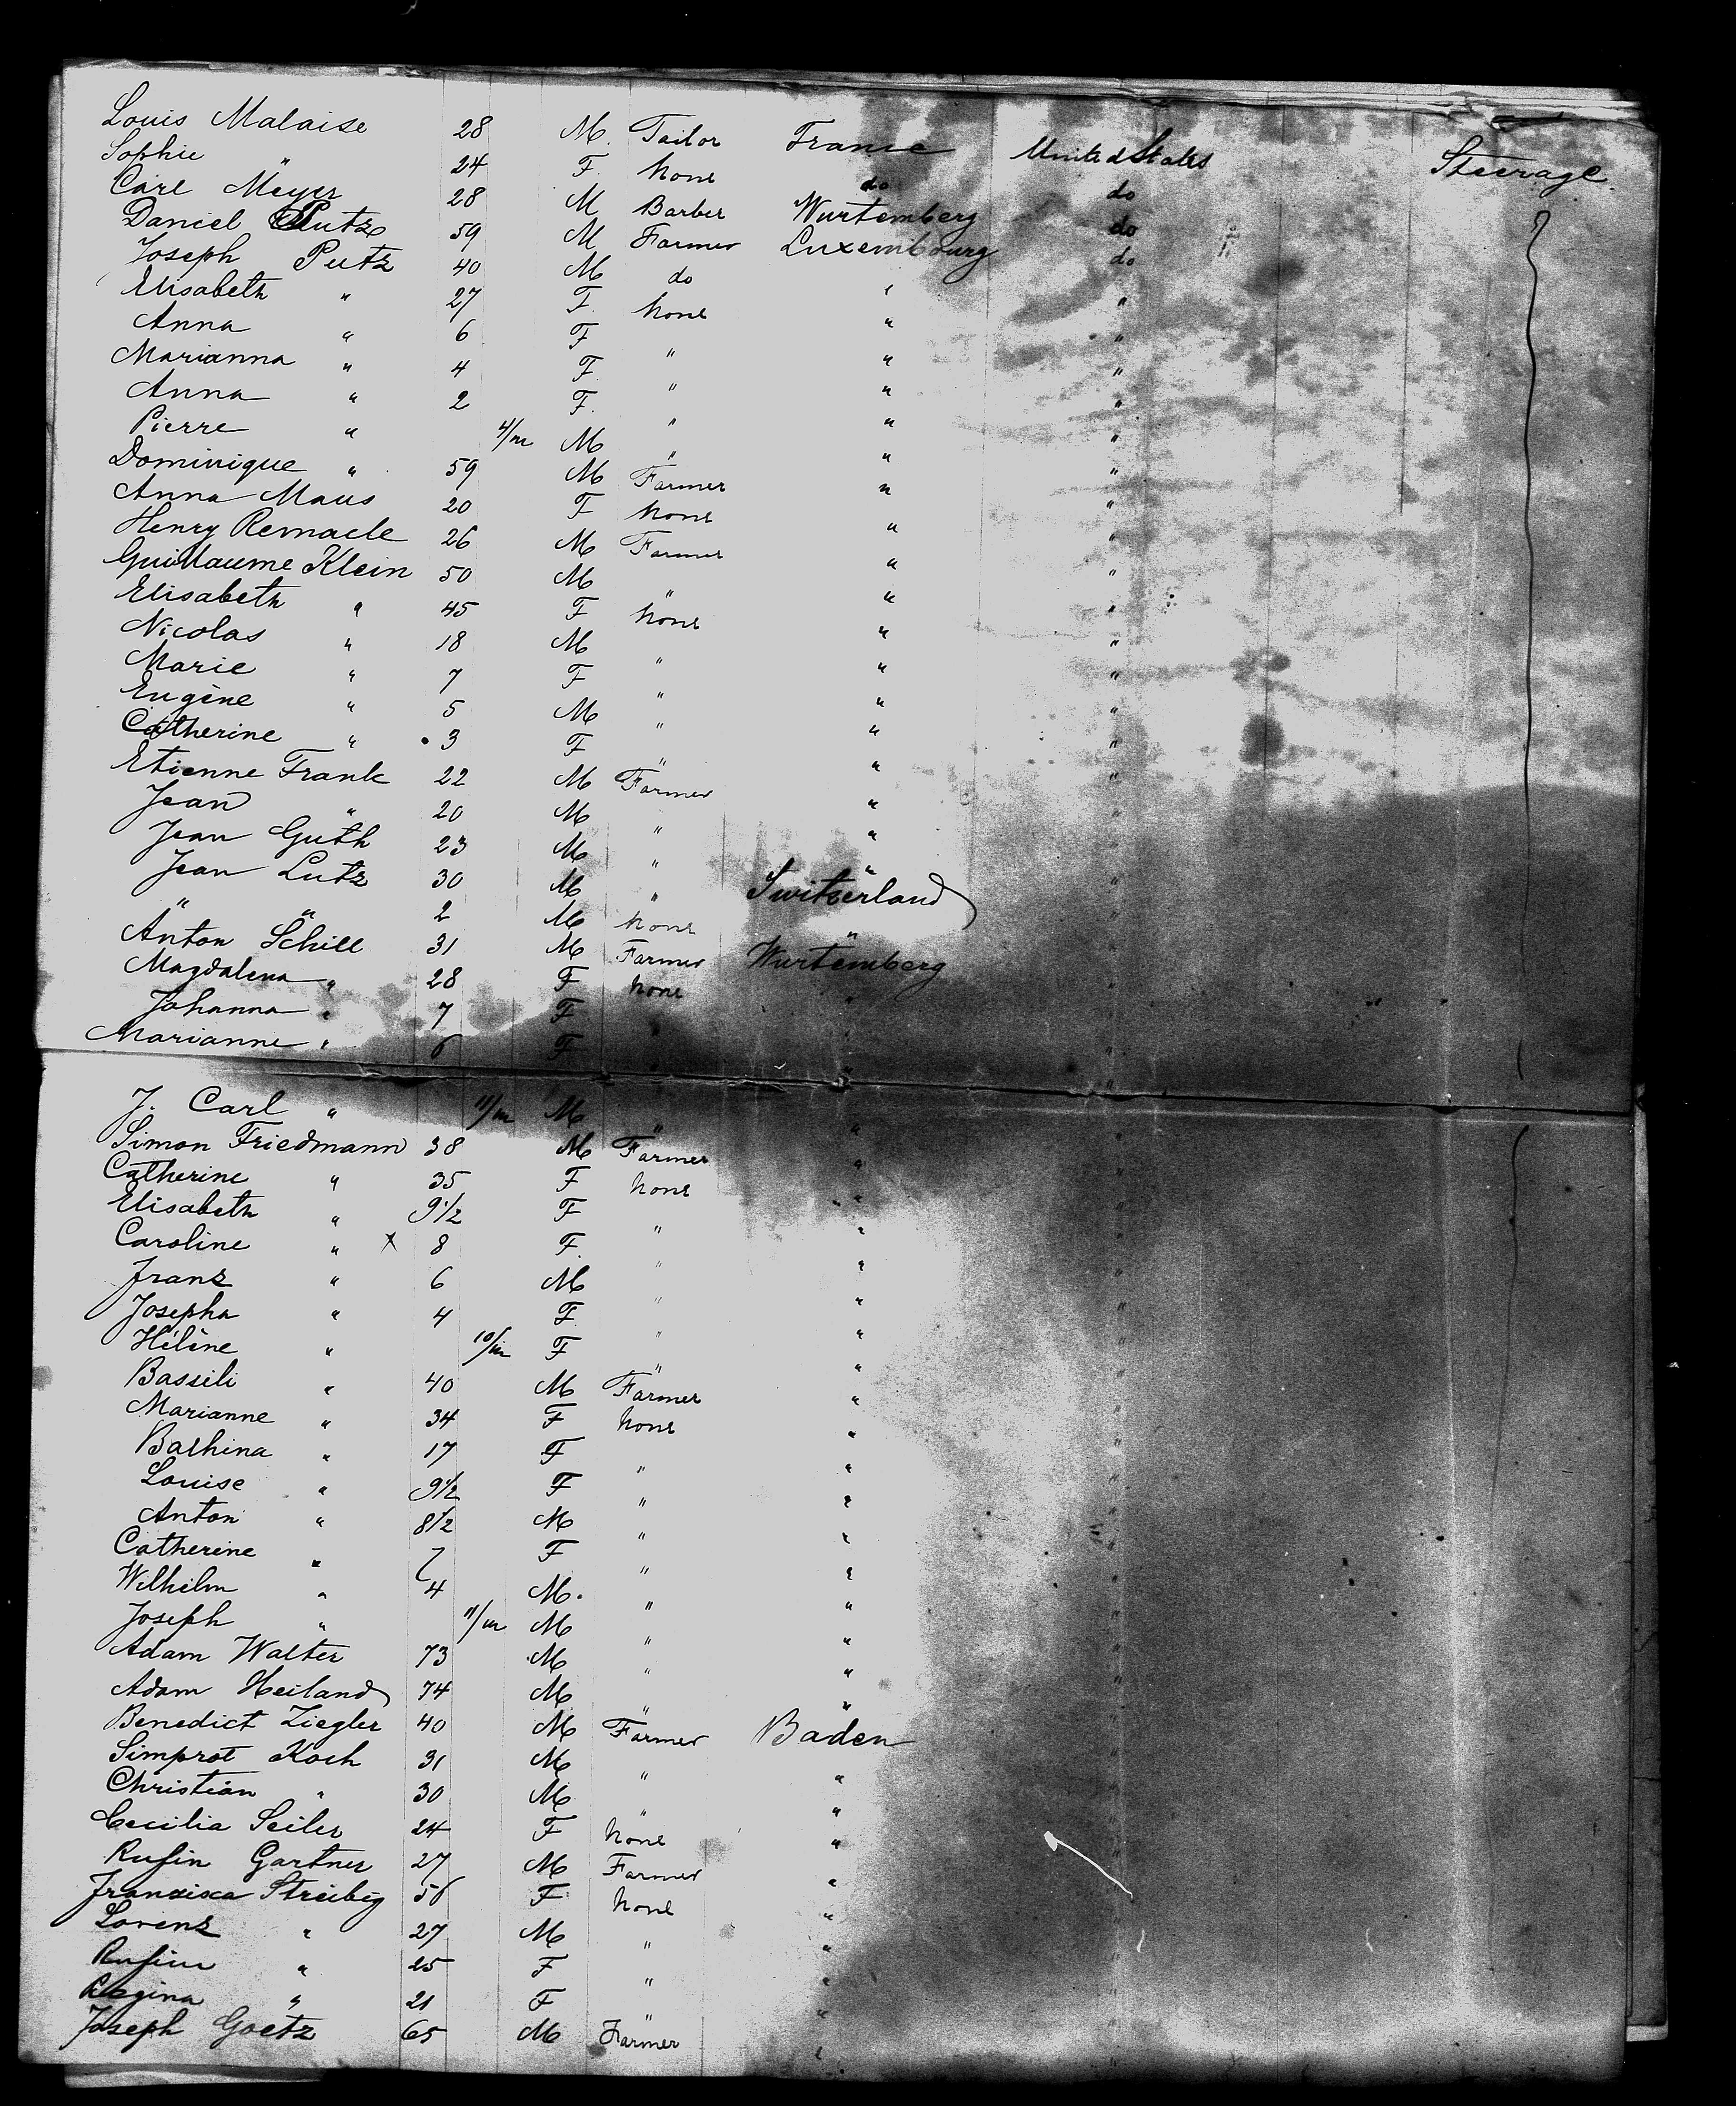 Louis Malaise 28 M. Tailor France United States Steerage
Sophie " 24 F. None do do
Carl Meyer 28 M Barber Wurtemberg do
Daniel Putz 59 M Farmer Luxembourg do
Joseph Putz 40 M do " "
Elisabeth " 27 F. None " "
Anna " 6 F " " "
Marianna " 4 F. " " "
Anna " 2 F. " " "
Pierre " 4/m M " " "
Dominique " 59 M Farmer " "
Anna Maus 20 F None " "
Henry Remacle 26 M Farmer " "
Guillaume Klein 50 M " " "
Elisabeth " 45 F None " "
Nicolas " 18 M " " "
Marie " 7 F " " "
Eugène " 5 M " " "
Catherine " 3 F " " "
Etienne Frank 22 M Farmer " "
Jean " 20 M " " "
Jean Guth 23 M " " "
Jean Lutz 30 M " Switserland "
" " 2 M None " "
Anton Schill 31 M Farmer Wurtemberg "
Magdalena " 28 F None " "
Johanna " 7 F " "
Marianne " 6 F " "
J. Carl " 11/m M " " "
Simon Friedmann 38 M Farmer " "
Catherine " 35 F None " "
Elisabeth " 9 1/2 F " " "
Caroline " x 8 F. " " "
Franz " 6 M " " "
Josepha " 4 F. " " "
Hélène " 10/m F " " "
Bassili " 40 M Farmer " "
Marianne " 34 F None " "
" 17 F " " "
Louise " 9 1/2 F " " "
Anton " 8 1/2 M " " "
Catherine " 7 F " " "
Wilhelm " 4 M. " " "
Joseph " 11/m M " " "
Adam Walter 73 M " " "
Adam Heiland 74 M " " "
Benedict Ziegler 40 M Farmer Baden "
Simprot Koch 31 M " " "
Christian " 30 M " " "
Cecilia Seiler 24 F None " "
Rufin Gartner 27 M Farmer " "
Franzisca Streibig 56 F None " "
Lorenz " 27 M " " "
Rufina " 25 F " " "
Regina " 21 F " "
Joseph Goetz 65 M Farmer "